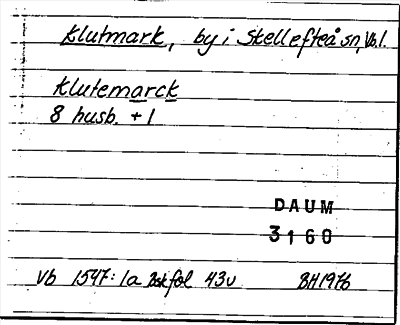 Klutmark, by i Skellefteå sn, Vb.l.
Klutemarck
8 husb. + 1
DAUM
3160
Vb 1547: 1a Bskfol 43v BH1976